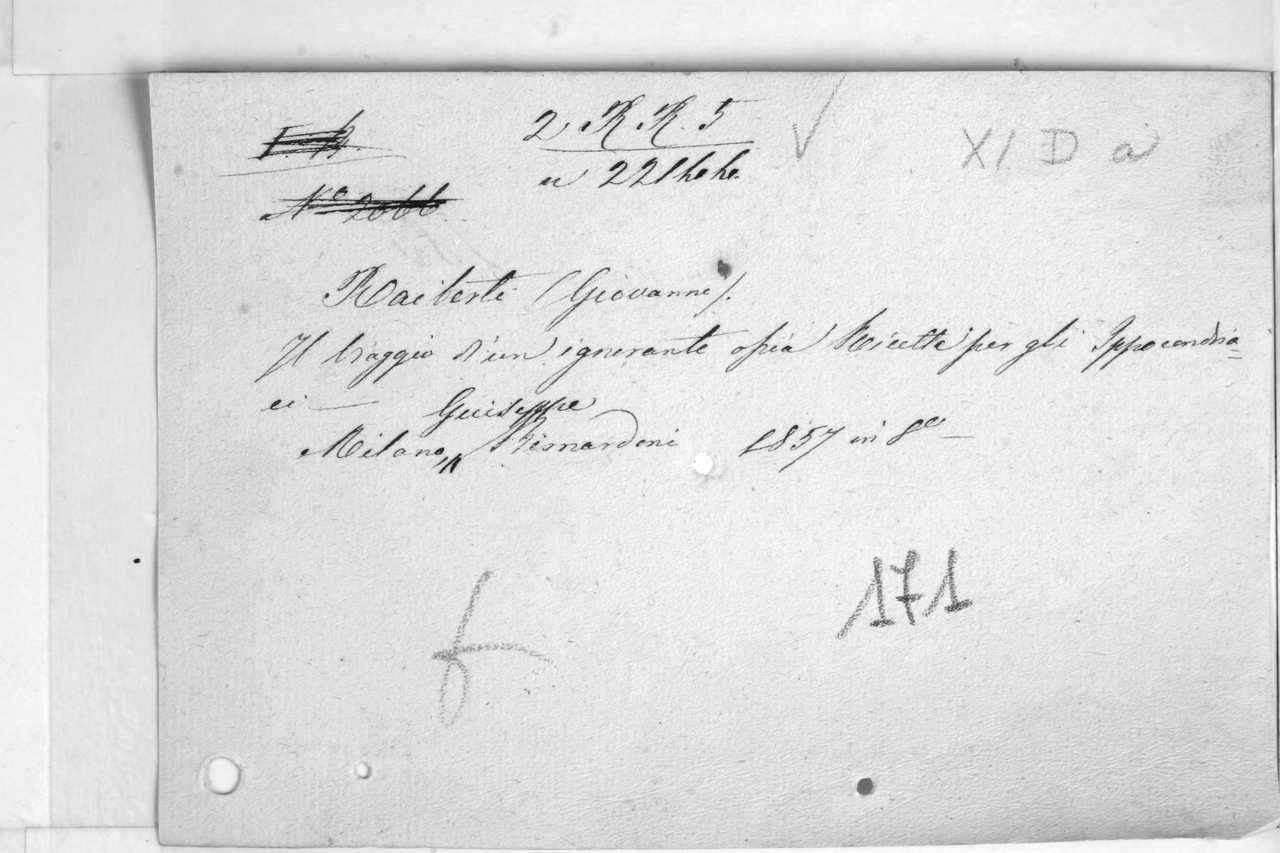 2 R. R. 5
XI D a
N° 2066
u 221 he he.
Raiberti (Giovanni).
Il Viaggio d'un ignorante ossia Ricetta per gli Ippocondria=
ci —
Giuseppe
Milano, Bernardoni 1857 in 8° —
171
f